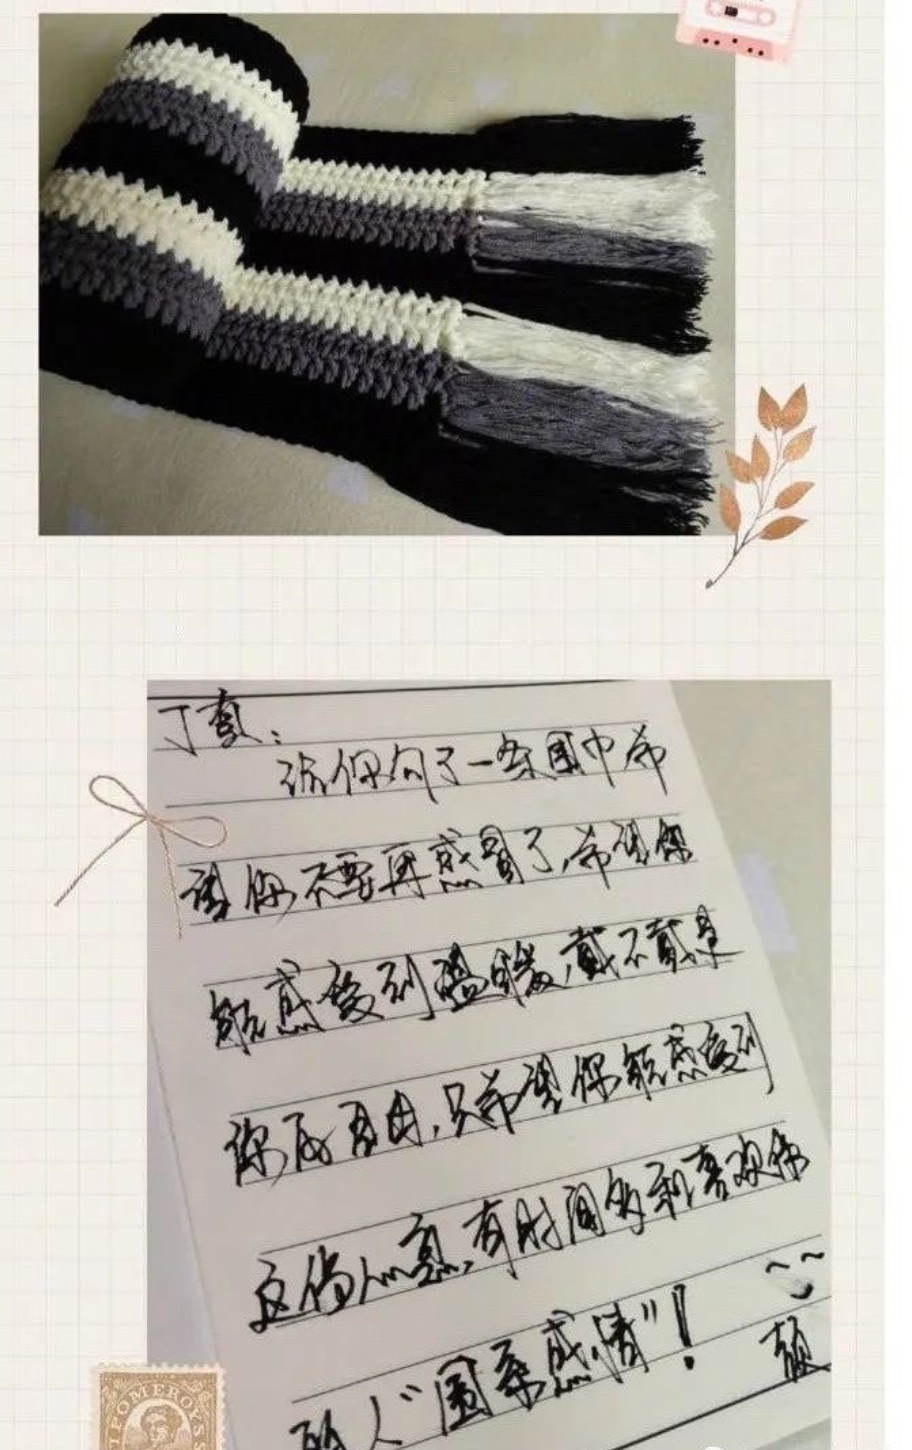 丁真:
给你勾了一条围巾希
望你不要再感冒了希望你
能感受到温暖,戴不戴是
你的自由,只希望你能感受到
这份心意,有时间多和喜欢你
的人"围系感情"!
颜
POMEROY'S